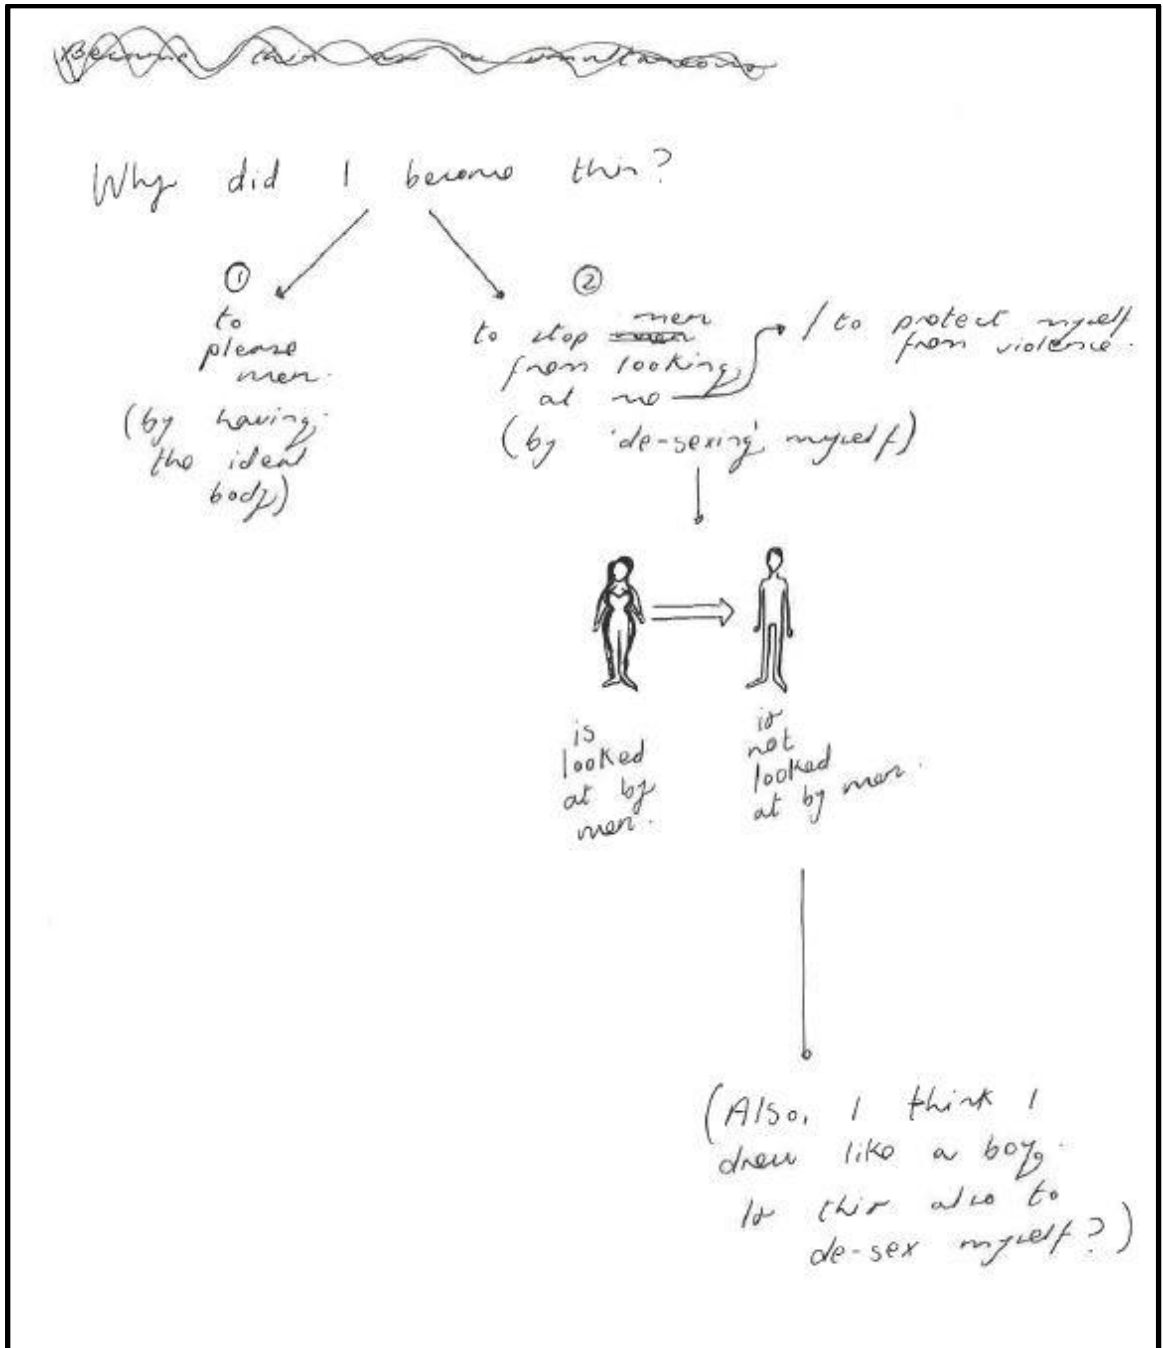 Why did I become thin?
①
to
please
men.
(by having
the ideal
body)
②
to stop men
from looking
at me
(by 'de-sexing' myself)
/ to protect myself
from violence.
is
looked
at by
men.
is
not
looked
at by men.
(Also, I think I
dress like a boy.
Is this also to
de-sex myself?)